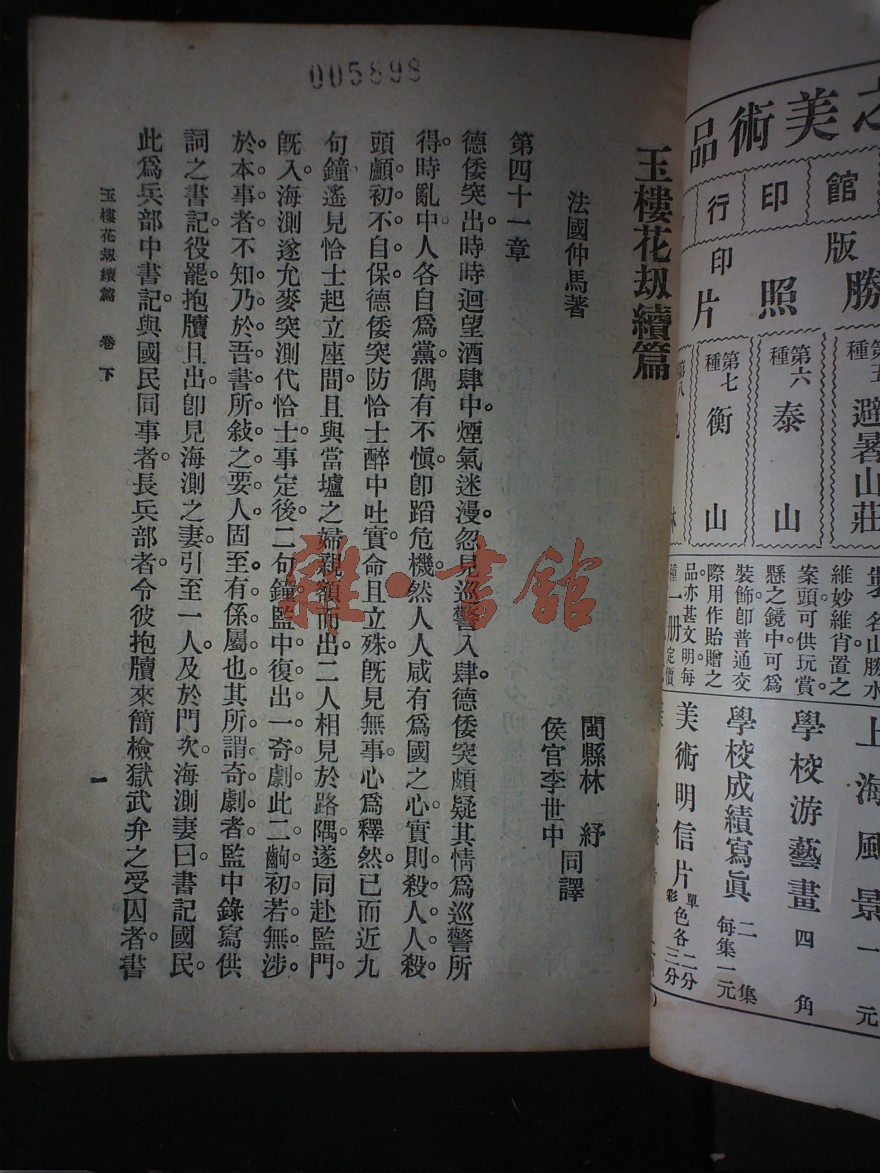 005898
玉樓花刼續篇
法國仲馬著
閩縣林　紓
侯官李世中
同譯
第四十一章
德倭突出時時迴望酒肆中。煙氣迷漫。忽見巡警入肆。德倭突頗疑其情爲巡警所
得。時亂中人各自爲黨。偶有不愼。卽蹈危機。然人人咸有爲國之心。實則殺人人殺。
頭顱初不自保。德倭突防恰士醉中吐實。命且立殊。旣見無事。心爲釋然。已而近九
句鐘。遙見恰士起立座間。且與當壚之婦親額而出。二人相見於路隅。遂同赴監門。
旣入。海測遂允麥突測代恰士事定後。二句鐘。監中復出一奇劇。此二齣初若無涉
於本事者。不知乃於吾書所敍之要人。固至有係屬也。其所謂奇劇者。監中錄寫供
詞之書記。役罷抱牘且出。卽見海測之妻。引至一人。及於門次。海測妻曰。書記國民。
此爲兵部中書記。與國民同事者。長兵部者。令彼抱牘來簡檢獄武弁之受囚者。書
玉樓花刼續篇　卷下
一
之美術品
館印行
版印
勝照片
第五種　避暑山莊
第六種　泰山
第七種　衡山
名山勝水
維妙維肖置之
案頭可供玩賞。
懸之鏡中可爲
裝飾卽普通交
際用作貽贈之
品亦甚文明每
種一册定價
上海風景　一元
學校游藝畫　四角
學校成績寫眞　二集　每集一元
美術明信片　單色各二分　彩三分
雜·書館